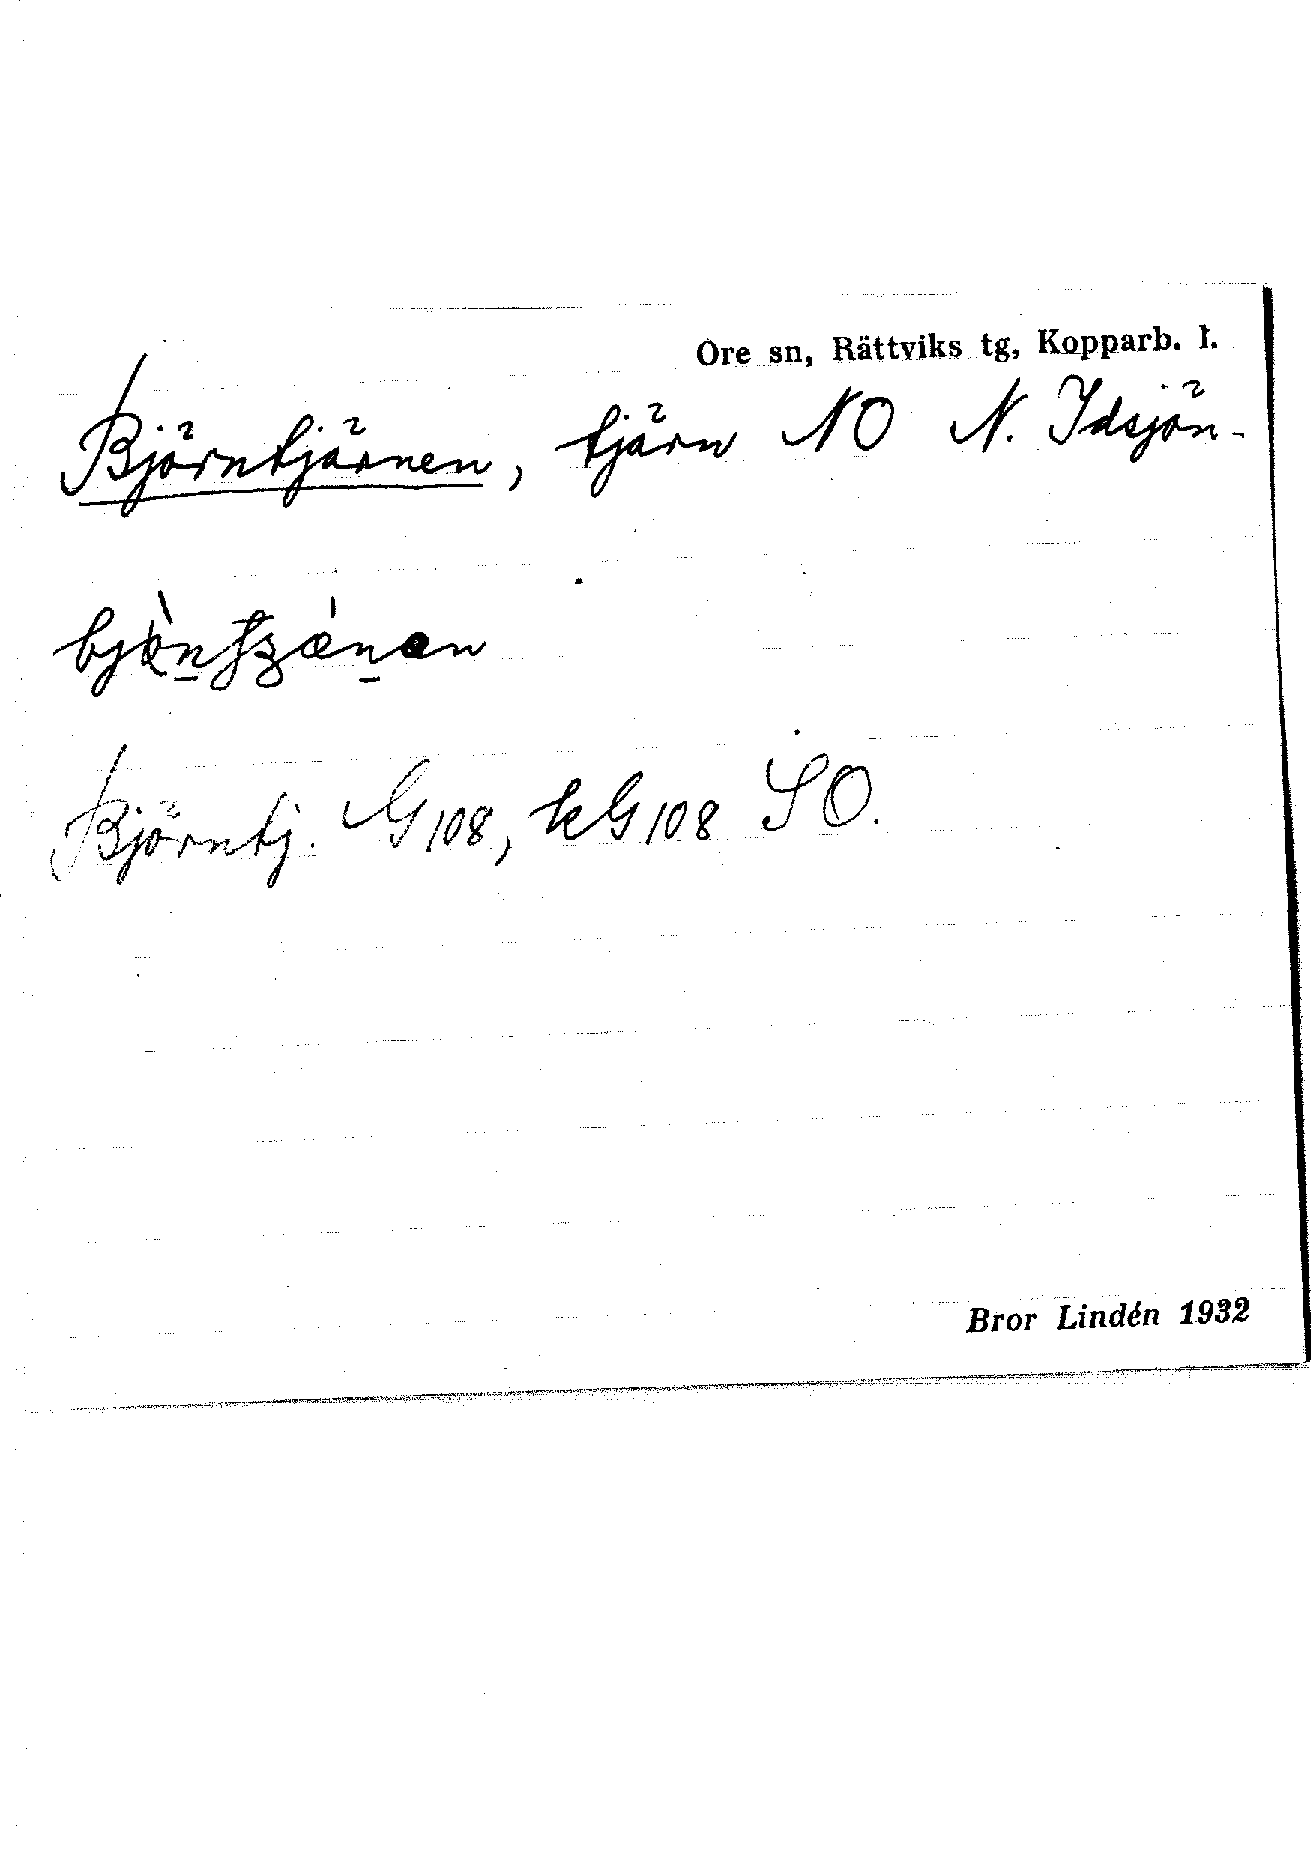 Ore sn, Rättviks tg, Kopparb. l.
Björntjärnen, tjärn NO N. Idsjön-
Björntj. G108, kG108 SO.
Bror Lindén 1932